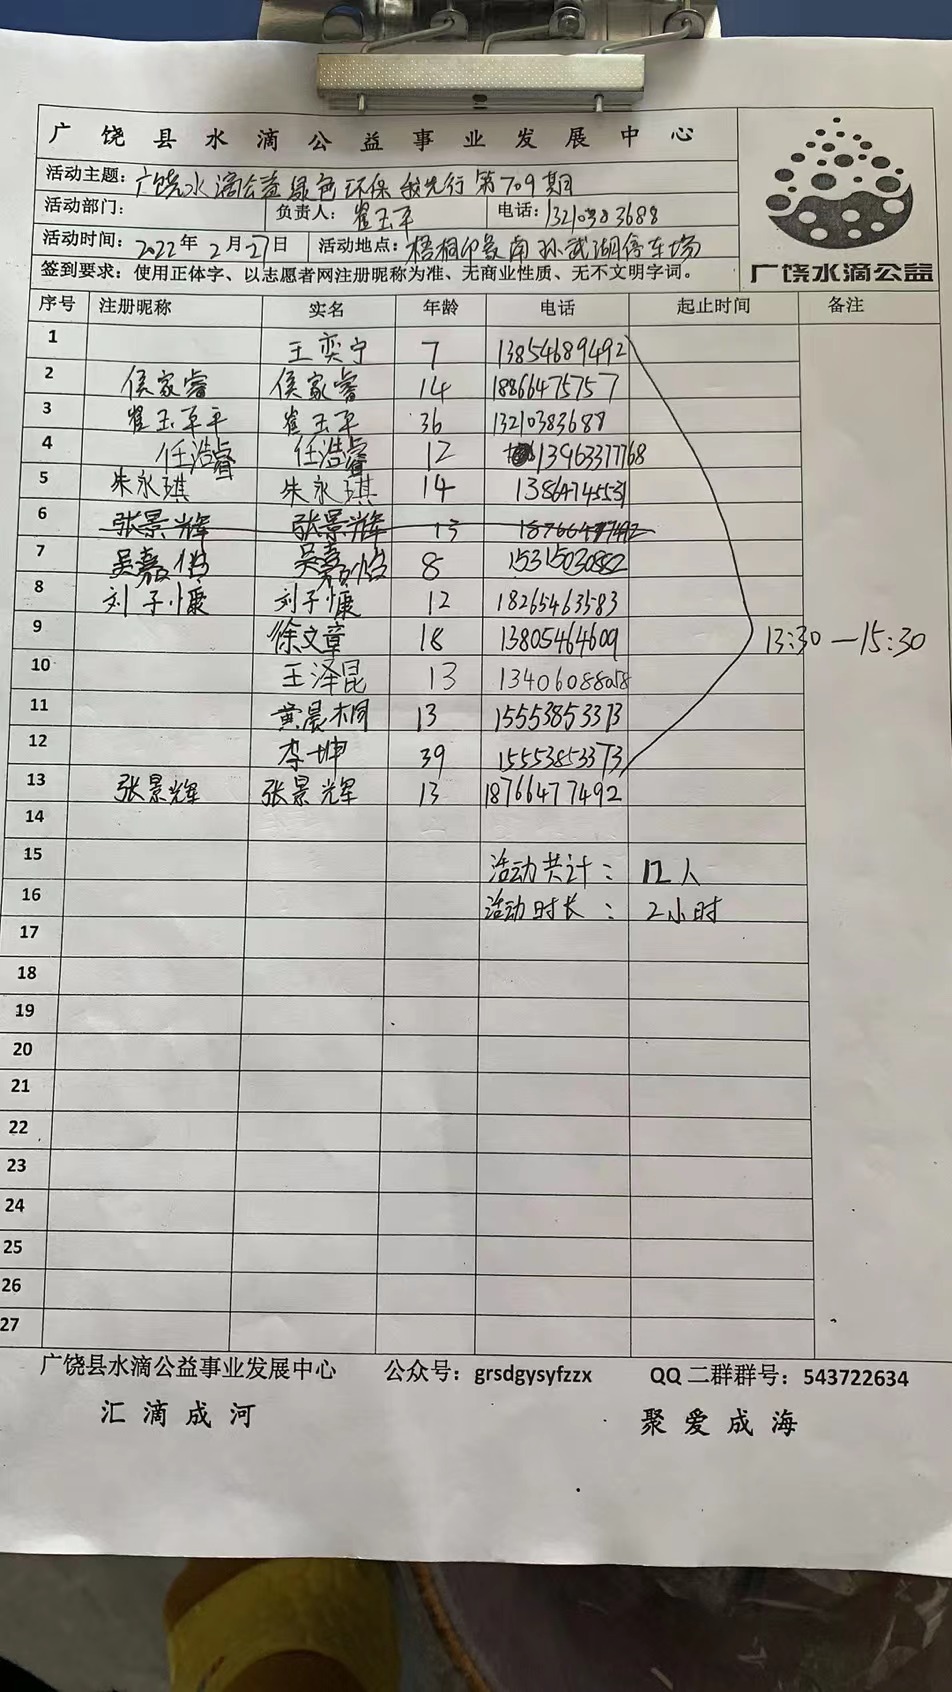 广饶县水滴公益事业发展中心
活动主题：广饶水滴公益绿色环保 我先行 第709期
活动部门： 负责人：崔玉平 电话：13210383688
活动时间：2022年2月27日 活动地点：梧桐印象南孙武湖停车场
签到要求：使用正体字、以志愿者网注册昵称为准、无商业性质、无不文明字词。
广饶水滴公益
序号 注册昵称 实名 年龄 电话 起止时间 备注
1 王奕宁 7 13854689492
2 侯家睿 侯家睿 14 18866475757
3 崔玉平 崔玉平 36 13210383688
4 任浩睿 任浩睿 12 13963377768
5 朱永琪 朱永琪 14 13864745531
6 张景辉 张景辉 13 18766477492
7 吴嘉怡 吴嘉怡 8 15315030882
8 刘子慷 刘子慷 12 18265463583
9 徐文章 18 13805464609
13:30—15:30
10 王泽昆 13 13406088058
11 黄晨桐 13 15553853373
12 李坤 39 15553853373
13 张景辉 张景辉 13 18766477492
14
15 活动共计： 12人
16 活动时长： 2小时
17
18
19
20
21
22
23
24
25
26
27
广饶县水滴公益事业发展中心 公众号：grsdgysyfzzx QQ二群群号：543722634
汇滴成河 聚爱成海